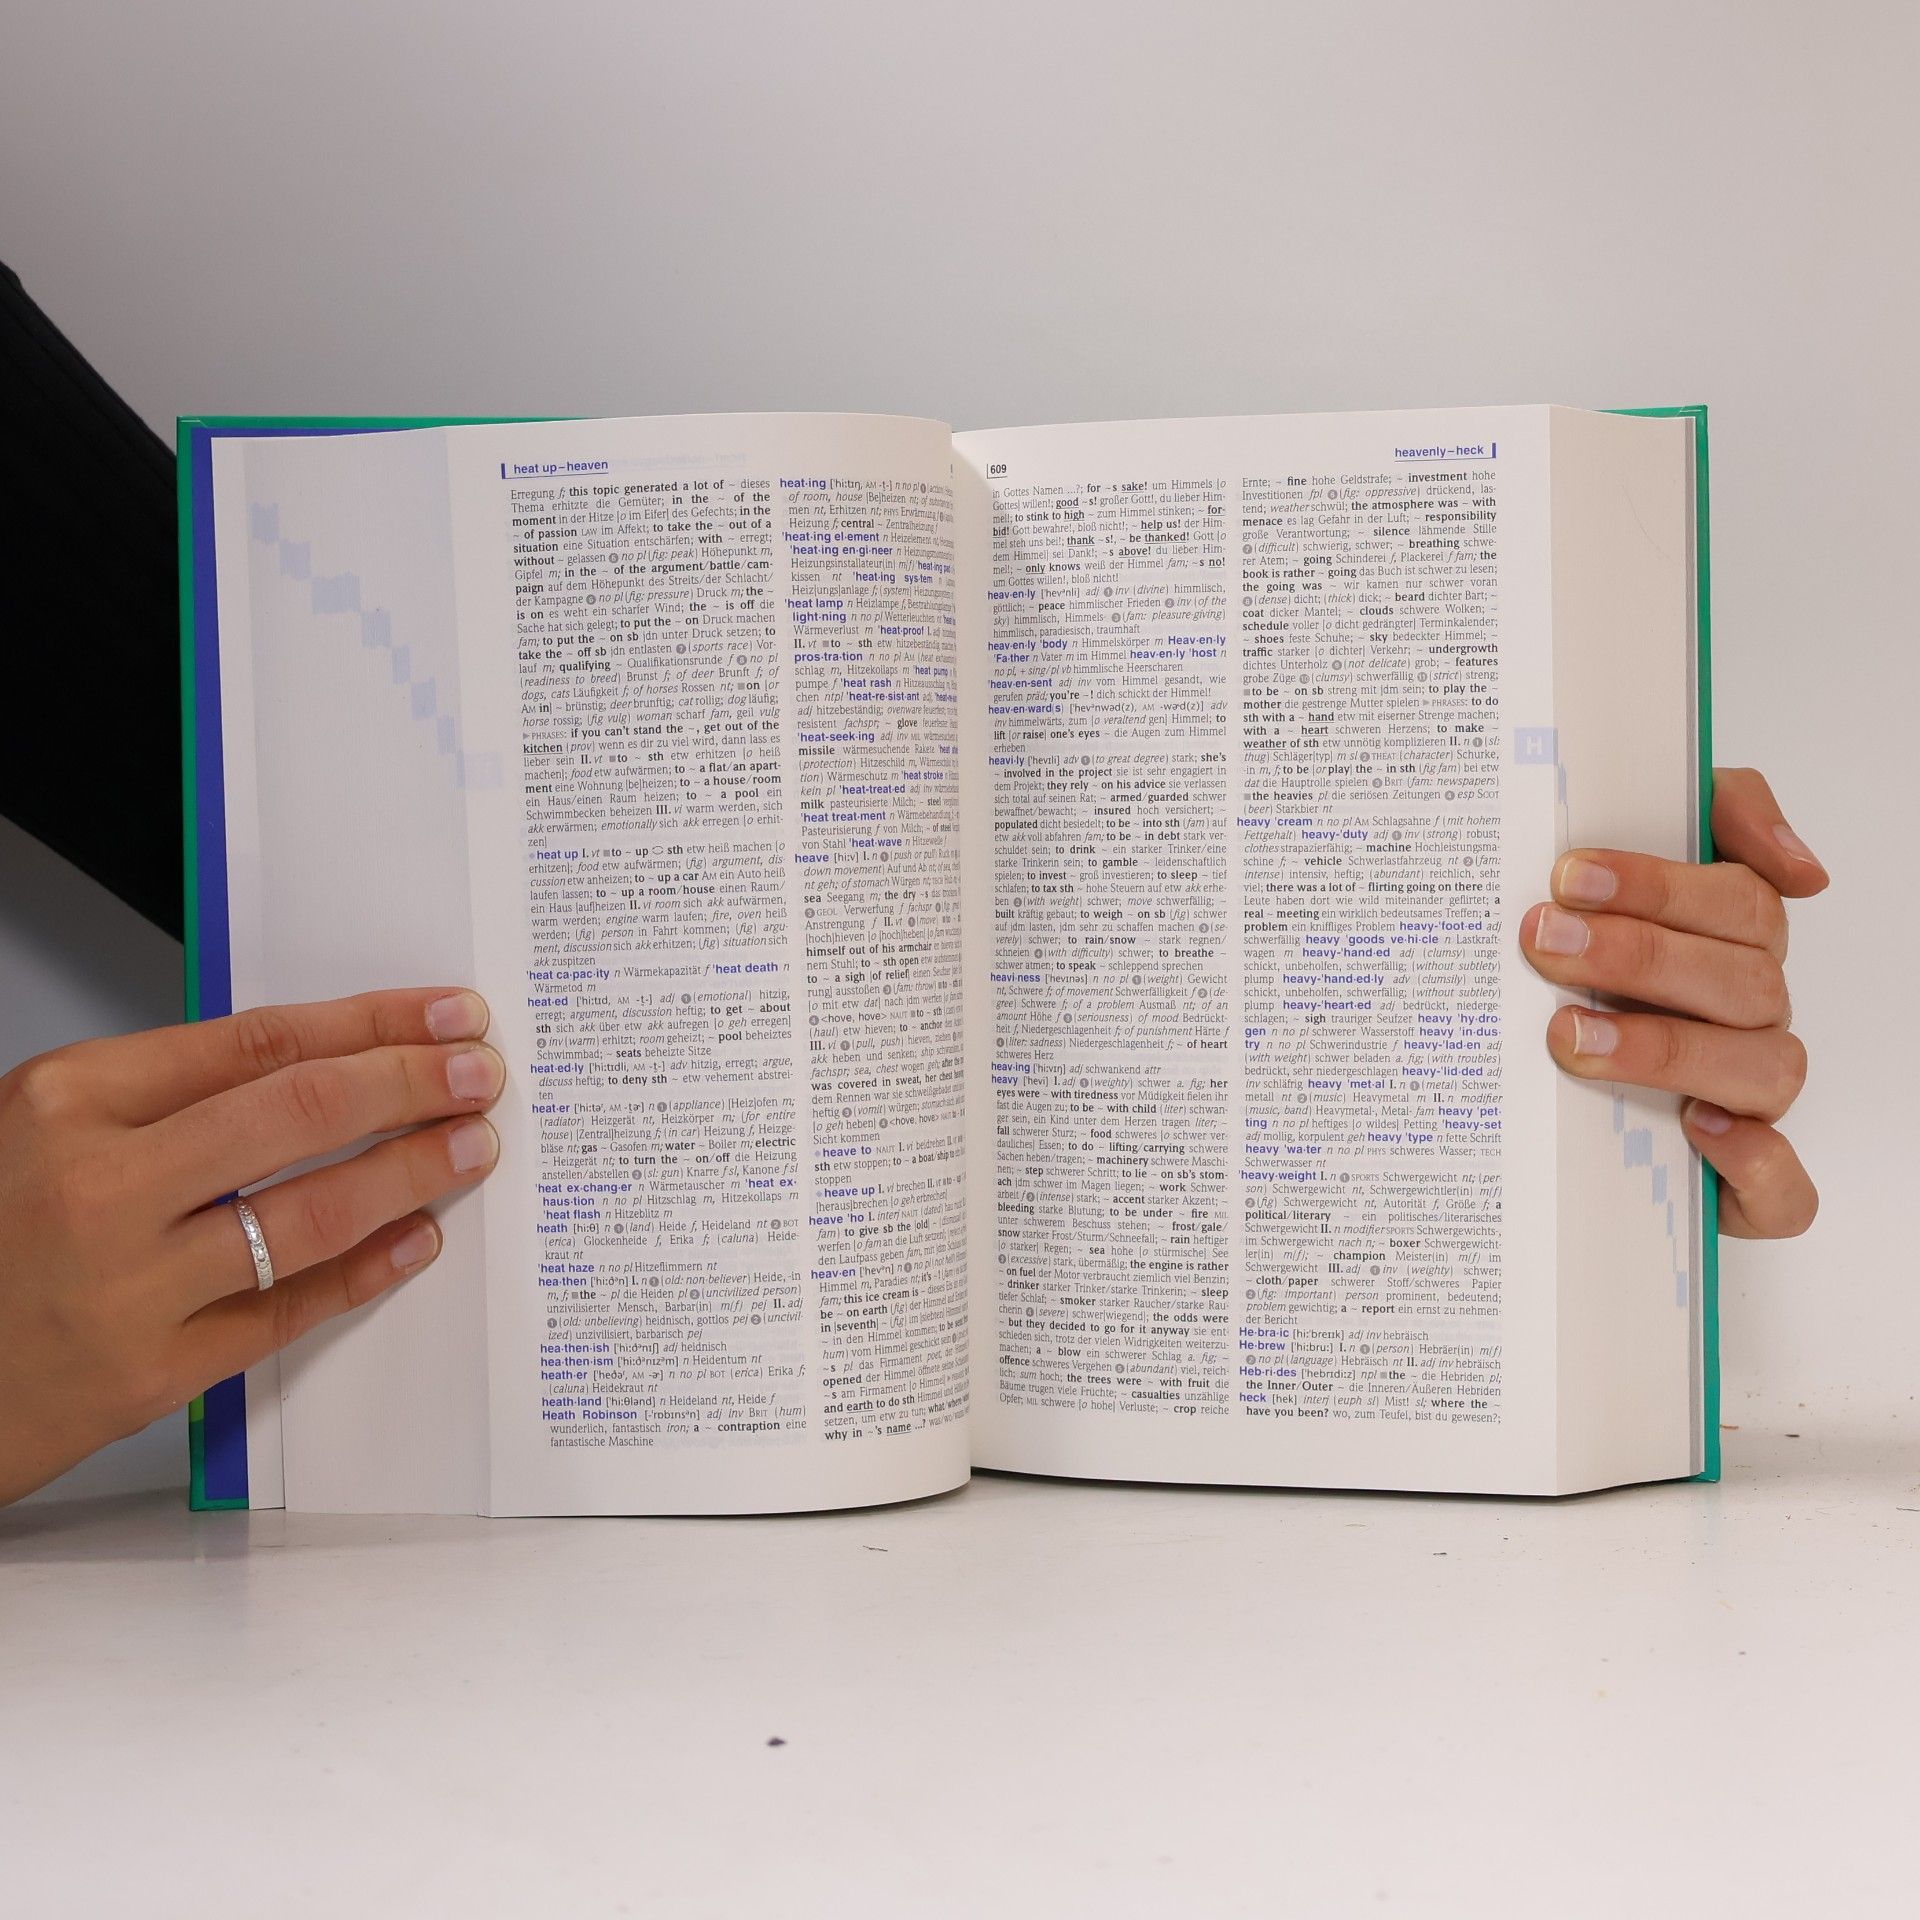 heat up–heaven
Erregung f; this topic generated a lot of ~ dieses
Thema erhitzte die Gemüter; in the ~ of the
moment in der Hitze [o im Eifer] des Gefechts; in the
~ of passion LAW im Affekt; to take the ~ out of a
situation eine Situation entschärfen; with ~ erregt;
without ~ gelassen ⑤ no pl (fig: peak) Höhepunkt m,
Gipfel m; in the ~ of the argument/battle/cam-
paign auf dem Höhepunkt des Streits/der Schlacht/
der Kampagne ⑥ no pl (fig: pressure) Druck m; the ~
is on es weht ein scharfer Wind; the ~ is off die
Sache hat sich gelegt; to put the ~ on Druck machen
fam; to put the ~ on sb jdn unter Druck setzen; to
take the ~ off sb jdn entlasten ⑦ (sports race) Vor-
lauf m; qualifying ~ Qualifikationsrunde f ⑧ no pl
(readiness to breed) Brunst f; of deer Brunft f; of
dogs, cats Läufigkeit f; of horses Rossen nt; ■on [or
AM in] ~ brünstig; deer brunftig; cat rollig; dog läufig;
horse rossig; (fig vulg) woman scharf fam, geil vulg
▶ PHRASES: if you can't stand the ~, get out of the
kitchen (prov) wenn es dir zu viel wird, dann lass es
lieber sein II. vt ■to ~ sth etw erhitzen [o heiß
machen]; food etw aufwärmen; to ~ a flat/an apart-
ment eine Wohnung [be]heizen; to ~ a house/room
ein Haus/einen Raum heizen; to ~ a pool ein
Schwimmbecken beheizen III. vi warm werden, sich
akk erwärmen; emotionally sich akk erregen [o erhit-
zen]
◆heat up I. vt ■to ~ up ⇔ sth etw heiß machen [o
erhitzen]; food etw aufwärmen; (fig) argument, dis-
cussion etw anheizen; to ~ up a car AM ein Auto heiß
laufen lassen; to ~ up a room/house einen Raum/
ein Haus [auf]heizen II. vi room sich akk aufwärmen,
warm werden; engine warm laufen; fire, oven heiß
werden; (fig) person in Fahrt kommen; (fig) argu-
ment, discussion sich akk erhitzen; (fig) situation sich
akk zuspitzen
'heat ca·pac·ity n Wärmekapazität f 'heat death n
Wärmetod m
heat·ed ['hi:tɪd, AM -t̬-] adj ① (emotional) hitzig,
erregt; argument, discussion heftig; to get ~ about
sth sich akk über etw akk aufregen [o geh erregen]
② inv (warm) erhitzt; room geheizt; ~ pool beheiztes
Schwimmbad; ~ seats beheizte Sitze
heat·ed·ly ['hi:tɪdli, AM -t̬-] adv hitzig, erregt; argue,
discuss heftig; to deny sth ~ etw vehement abstrei-
ten
heat·er ['hi:təʳ, AM -t̬ɚ] n ① (appliance) [Heiz]ofen m;
(radiator) Heizgerät nt, Heizkörper m; (for entire
house) [Zentral]heizung f; (in car) Heizung f, Heizge-
bläse nt; gas ~ Gasofen m; water ~ Boiler m; electric
~ Heizgerät nt; to turn the ~ on/off die Heizung
anstellen/abstellen ② (sl: gun) Knarre f sl, Kanone f sl
'heat ex·chang·er n Wärmetauscher m 'heat ex-
haus·tion n no pl Hitzschlag m, Hitzekollaps m
'heat flash n Hitzeblitz m
heath [hi:θ] n ① (land) Heide f, Heideland nt ② BOT
(erica) Glockenheide f, Erika f; (caluna) Heide-
kraut nt
'heat haze n no pl Hitzeflimmern nt
hea·then ['hi:ðᵊn] I. n ① (old: non-believer) Heide, -in
m, f; ■the ~ pl die Heiden pl ② (uncivilized person)
unzivilisierter Mensch, Barbar(in) m(f) pej II. adj
① (old: unbelieving) heidnisch, gottlos pej ② (uncivil-
ized) unzivilisiert, barbarisch pej
hea·then·ish ['hi:ðᵊnɪʃ] adj heidnisch
hea·then·ism ['hi:ðᵊnɪzᵊm] n Heidentum nt
heath·er ['heðəʳ, AM -ɚ] n no pl BOT (erica) Erika f;
(caluna) Heidekraut nt
heath·land ['hi:θlənd] n Heideland nt, Heide f
Heath Robinson [-'rɒbɪnsᵊn] adj inv BRIT (hum)
wunderlich, fantastisch iron; a ~ contraption eine
fantastische Maschine
heat·ing ['hi:tɪŋ, AM -t̬-] n no pl ①
of room, house [Be]heizen nt; of
men nt, Erhitzen nt; PHYS Erwärmung f
Heizung f; central ~ Zentralheizung f
'heat·ing el·ement n Heizelement nt,
'heat·ing en·gi·neer n
Heizungsinstallateur(in) m(f) 'heat·ing pad
kissen nt 'heat·ing sys·tem n
Heiz[ungs]anlage f; (system)
'heat lamp n Heizlampe f,
light·ning n no pl Wetterleuchten nt
Wärmeverlust m 'heat·proof I. adj
II. vt ■to ~ sth etw hitzebeständig
pros·tra·tion n no pl AM (heat
schlag m, Hitzekollaps m 'heat pump
pumpe f 'heat rash n Hitzeausschlag m
chen ntpl 'heat-re·sist·ant adj,
adj hitzebeständig; ovenware feuerfest;
resistent fachspr; ~ glove
'heat-seek·ing adj inv MIL
missile wärmesuchende Rakete
(protection) Hitzeschild m,
tion) Wärmeschutz m 'heat stroke n
kein pl 'heat-treat·ed adj inv
milk pasteurisierte Milch; ~ steel
'heat treat·ment n Wärmebehandlung f
Pasteurisierung f von Milch; ~ of steel
von Stahl 'heat·wave n Hitzewelle f
heave [hi:v] I. n ① (push or pull) Ruck m
down movement) Auf und Ab nt; of sea,
nt geh; of stomach Würgen nt;
sea Seegang m; the dry ~s
③ GEOL Verwerfung f fachspr
Anstrengung f II. vt ① (move)
[hoch]hieven [o [hoch]heben]
himself out of his armchair er
nem Stuhl; to ~ sth open etw
to ~ a sigh [of relief] einen Seufzer
rung] ausstoßen ③ (fam: throw)
[o mit etw dat] nach jdm werfen
④ <hove, hove> NAUT ■to ~ sth
(haul) etw hieven; to ~ anchor den
III. vi ① (pull, push) hieven, ziehen
akk heben und senken; ship
fachspr; sea, chest wogen geh;
was covered in sweat, her chest
dem Rennen war sie
heftig ③ (vomit) würgen;
[o geh heben] ④ <hove, hove> NAUT
Sicht kommen
◆heave to NAUT I. vi beidrehen II. vt
sth etw stoppen; to ~ a boat/ship to
stoppen
◆heave up I. vi brechen II. vt
[heraus]brechen [o geh erbrechen]
heave 'ho I. interj NAUT (dated)
fam) to give sb the [old] ~
werfen [o fam an die Luft setzen];
den Laufpass geben fam, mit jdm
heav·en ['hevᵊn] n ① no pl (not hell)
Himmel m, Paradies nt; it's ~!
fam; this ice cream is ~ dieses Eis
be ~ on earth (fig) der Himmel auf
in [seventh] ~ (fig) im [siebten] Himmel
~ in den Himmel kommen; to be
hum) vom Himmel geschickt sein
~s pl das Firmament poet, der
opened der Himmel öffnete seine
~s am Firmament [o Himmel]
and earth to do sth Himmel und
setzen, um etw zu tun; what/where/
why in ~'s name ...? was/wo/
609
heavenly–heck
in Gottes Namen ...?; for ~s sake! um Himmels [o
Gottes] willen!; good ~s! großer Gott!, du lieber Him-
mel!; to stink to high ~ zum Himmel stinken; ~ for-
bid! Gott bewahre!, bloß nicht!; ~ help us! der Him-
mel steh uns bei!; thank ~s!, ~ be thanked! Gott [o
dem Himmel] sei Dank!; ~s above! du lieber Him-
mel!; ~ only knows weiß der Himmel fam; ~s no!
um Gottes willen!, bloß nicht!
heav·en·ly ['hevᵊnli] adj ① inv (divine) himmlisch,
göttlich; ~ peace himmlischer Frieden ② inv (of the
sky) himmlisch, Himmels- ③ (fam: pleasure-giving)
himmlisch, paradiesisch, traumhaft
heav·en·ly 'body n Himmelskörper m Heav·en·ly
'Fa·ther n Vater m im Himmel heav·en·ly 'host n
no pl, + sing/pl vb himmlische Heerscharen
'heav·en-sent adj inv vom Himmel gesandt, wie
gerufen präd; you're ~! dich schickt der Himmel!
heav·en·ward(s) ['hevᵊnwəd(z), AM -wɚd(z)] adv
inv himmelwärts, zum [o veraltend gen] Himmel; to
lift [or raise] one's eyes ~ die Augen zum Himmel
erheben
heavi·ly ['hevɪli] adv ① (to great degree) stark; she's
~ involved in the project sie ist sehr engagiert in
dem Projekt; they rely ~ on his advice sie verlassen
sich total auf seinen Rat; ~ armed/guarded schwer
bewaffnet/bewacht; ~ insured hoch versichert; ~
populated dicht besiedelt; to be ~ into sth (fam) auf
etw akk voll abfahren fam; to be ~ in debt stark ver-
schuldet sein; to drink ~ ein starker Trinker/eine
starke Trinkerin sein; to gamble ~ leidenschaftlich
spielen; to invest ~ groß investieren; to sleep ~ tief
schlafen; to tax sth ~ hohe Steuern auf etw akk erhe-
ben ② (with weight) schwer; move schwerfällig; ~
built kräftig gebaut; to weigh ~ on sb (fig) schwer
auf jdm lasten, jdm sehr zu schaffen machen ③ (se-
verely) schwer; to rain/snow ~ stark regnen/
schneien ④ (with difficulty) schwer; to breathe ~
schwer atmen; to speak ~ schleppend sprechen
heavi·ness ['hevɪnəs] n no pl ① (weight) Gewicht
nt, Schwere f; of movement Schwerfälligkeit f ② (de-
gree) Schwere f; of a problem Ausmaß nt; of an
amount Höhe f ③ (seriousness) of mood Bedrückt-
heit f, Niedergeschlagenheit f; of punishment Härte f
④ (liter: sadness) Niedergeschlagenheit f; ~ of heart
schweres Herz
heav·ing ['hi:vɪŋ] adj schwankend attr
heavy ['hevi] I. adj ① (weighty) schwer a. fig; her
eyes were ~ with tiredness vor Müdigkeit fielen ihr
fast die Augen zu; to be ~ with child (liter) schwan-
ger sein, ein Kind unter dem Herzen tragen liter; ~
fall schwerer Sturz; ~ food schweres [o schwer ver-
dauliches] Essen; to do ~ lifting/carrying schwere
Sachen heben/tragen; ~ machinery schwere Maschi-
nen; ~ step schwerer Schritt; to lie ~ on sb's stom-
ach jdm schwer im Magen liegen; ~ work Schwer-
arbeit f ② (intense) stark; ~ accent starker Akzent; ~
bleeding starke Blutung; to be under ~ fire MIL
unter schwerem Beschuss stehen; ~ frost/gale/
snow starker Frost/Sturm/Schneefall; ~ rain heftiger
[o starker] Regen; ~ sea hohe [o stürmische] See
③ (excessive) stark, übermäßig; the engine is rather
~ on fuel der Motor verbraucht ziemlich viel Benzin;
~ drinker starker Trinker/starke Trinkerin; ~ sleep
tiefer Schlaf; ~ smoker starker Raucher/starke Rau-
cherin ④ (severe) schwer[wiegend]; the odds were
~ but they decided to go for it anyway sie ent-
schieden sich, trotz der vielen Widrigkeiten weiterzu-
machen; a ~ blow ein schwerer Schlag a. fig; ~
offence schweres Vergehen ⑤ (abundant) viel, reich-
lich; sum hoch; the trees were ~ with fruit die
Bäume trugen viele Früchte; ~ casualties unzählige
Opfer; MIL schwere [o hohe] Verluste; ~ crop reiche
Ernte; ~ fine hohe Geldstrafe; ~ investment hohe
Investitionen fpl ⑥ (fig: oppressive) drückend, las-
tend; weather schwül; the atmosphere was ~ with
menace es lag Gefahr in der Luft; ~ responsibility
große Verantwortung; ~ silence lähmende Stille
⑦ (difficult) schwierig, schwer; ~ breathing schwe-
rer Atem; ~ going Schinderei f, Plackerei f fam; the
book is rather ~ going das Buch ist schwer zu lesen;
the going was ~ wir kamen nur schwer voran
⑧ (dense) dicht; (thick) dick; ~ beard dichter Bart; ~
coat dicker Mantel; ~ clouds schwere Wolken; ~
schedule voller [o dicht gedrängter] Terminkalender;
~ shoes feste Schuhe; ~ sky bedeckter Himmel; ~
traffic starker [o dichter] Verkehr; ~ undergrowth
dichtes Unterholz ⑨ (not delicate) grob; ~ features
grobe Züge ⑩ (clumsy) schwerfällig ⑪ (strict) streng;
■to be ~ on sb streng mit jdm sein; to play the ~
mother die gestrenge Mutter spielen ▶ PHRASES: to do
sth with a ~ hand etw mit eiserner Strenge machen;
with a ~ heart schweren Herzens; to make ~
weather of sth etw unnötig komplizieren II. n ① (sl:
thug) Schläger[typ] m sl ② THEAT (character) Schurke,
-in m, f; to be [or play] the ~ in sth (fig fam) bei etw
dat die Hauptrolle spielen ③ BRIT (fam: newspapers)
■the heavies pl die seriösen Zeitungen ④ esp SCOT
(beer) Starkbier nt
heavy 'cream n no pl AM Schlagsahne f (mit hohem
Fettgehalt) heavy-'duty adj ① inv (strong) robust;
clothes strapazierfähig; ~ machine Hochleistungsma-
schine f; ~ vehicle Schwerlastfahrzeug nt ② (fam:
intense) intensiv, heftig; (abundant) reichlich, sehr
viel; there was a lot of ~ flirting going on there die
Leute haben dort wie wild miteinander geflirtet; a
real ~ meeting ein wirklich bedeutsames Treffen; a ~
problem ein kniffliges Problem heavy-'foot·ed adj
schwerfällig heavy 'goods ve·hi·cle n Lastkraft-
wagen m heavy-'hand·ed adj (clumsy) unge-
schickt, unbeholfen, schwerfällig; (without subtlety)
plump heavy-'hand·ed·ly adv (clumsily) unge-
schickt, unbeholfen, schwerfällig; (without subtlety)
plump heavy-'heart·ed adj bedrückt, niederge-
schlagen; ~ sigh trauriger Seufzer heavy 'hy·dro-
gen n no pl schwerer Wasserstoff heavy 'in·dus-
try n no pl Schwerindustrie f heavy-'lad·en adj
(with weight) schwer beladen a. fig; (with troubles)
bedrückt, sehr niedergeschlagen heavy-'lid·ded adj
inv schläfrig heavy 'met·al I. n ① (metal) Schwer-
metall nt ② (music) Heavymetal m II. n modifier
(music, band) Heavymetal-, Metal- fam heavy 'pet-
ting n no pl heftiges [o wildes] Petting 'heavy-set
adj mollig, korpulent geh heavy 'type n fette Schrift
heavy 'wa·ter n no pl PHYS schweres Wasser; TECH
Schwerwasser nt
'heavy·weight I. n ① SPORTS Schwergewicht nt; (per-
son) Schwergewicht nt, Schwergewichtler(in) m(f)
② (fig) Schwergewicht nt, Autorität f, Größe f; a
political/literary ~ ein politisches/literarisches
Schwergewicht II. n modifier SPORTS Schwergewichts-,
im Schwergewicht nach n; ~ boxer Schwergewicht-
ler(in) m(f); ~ champion Meister(in) m(f) im
Schwergewicht III. adj ① inv (weighty) schwer;
~ cloth/paper schwerer Stoff/schweres Papier
② (fig: important) person prominent, bedeutend;
problem gewichtig; a ~ report ein ernst zu nehmen-
der Bericht
He·bra·ic [hi:'breɪɪk] adj inv hebräisch
He·brew ['hi:bru:] I. n ① (person) Hebräer(in) m(f)
② no pl (language) Hebräisch nt II. adj inv hebräisch
Heb·ri·des ['hebrɪdi:z] npl ■the ~ die Hebriden pl;
the Inner/Outer ~ die Inneren/Äußeren Hebriden
heck [hek] interj (euph sl) Mist! sl; where the ~
have you been? wo, zum Teufel, bist du gewesen?;
H